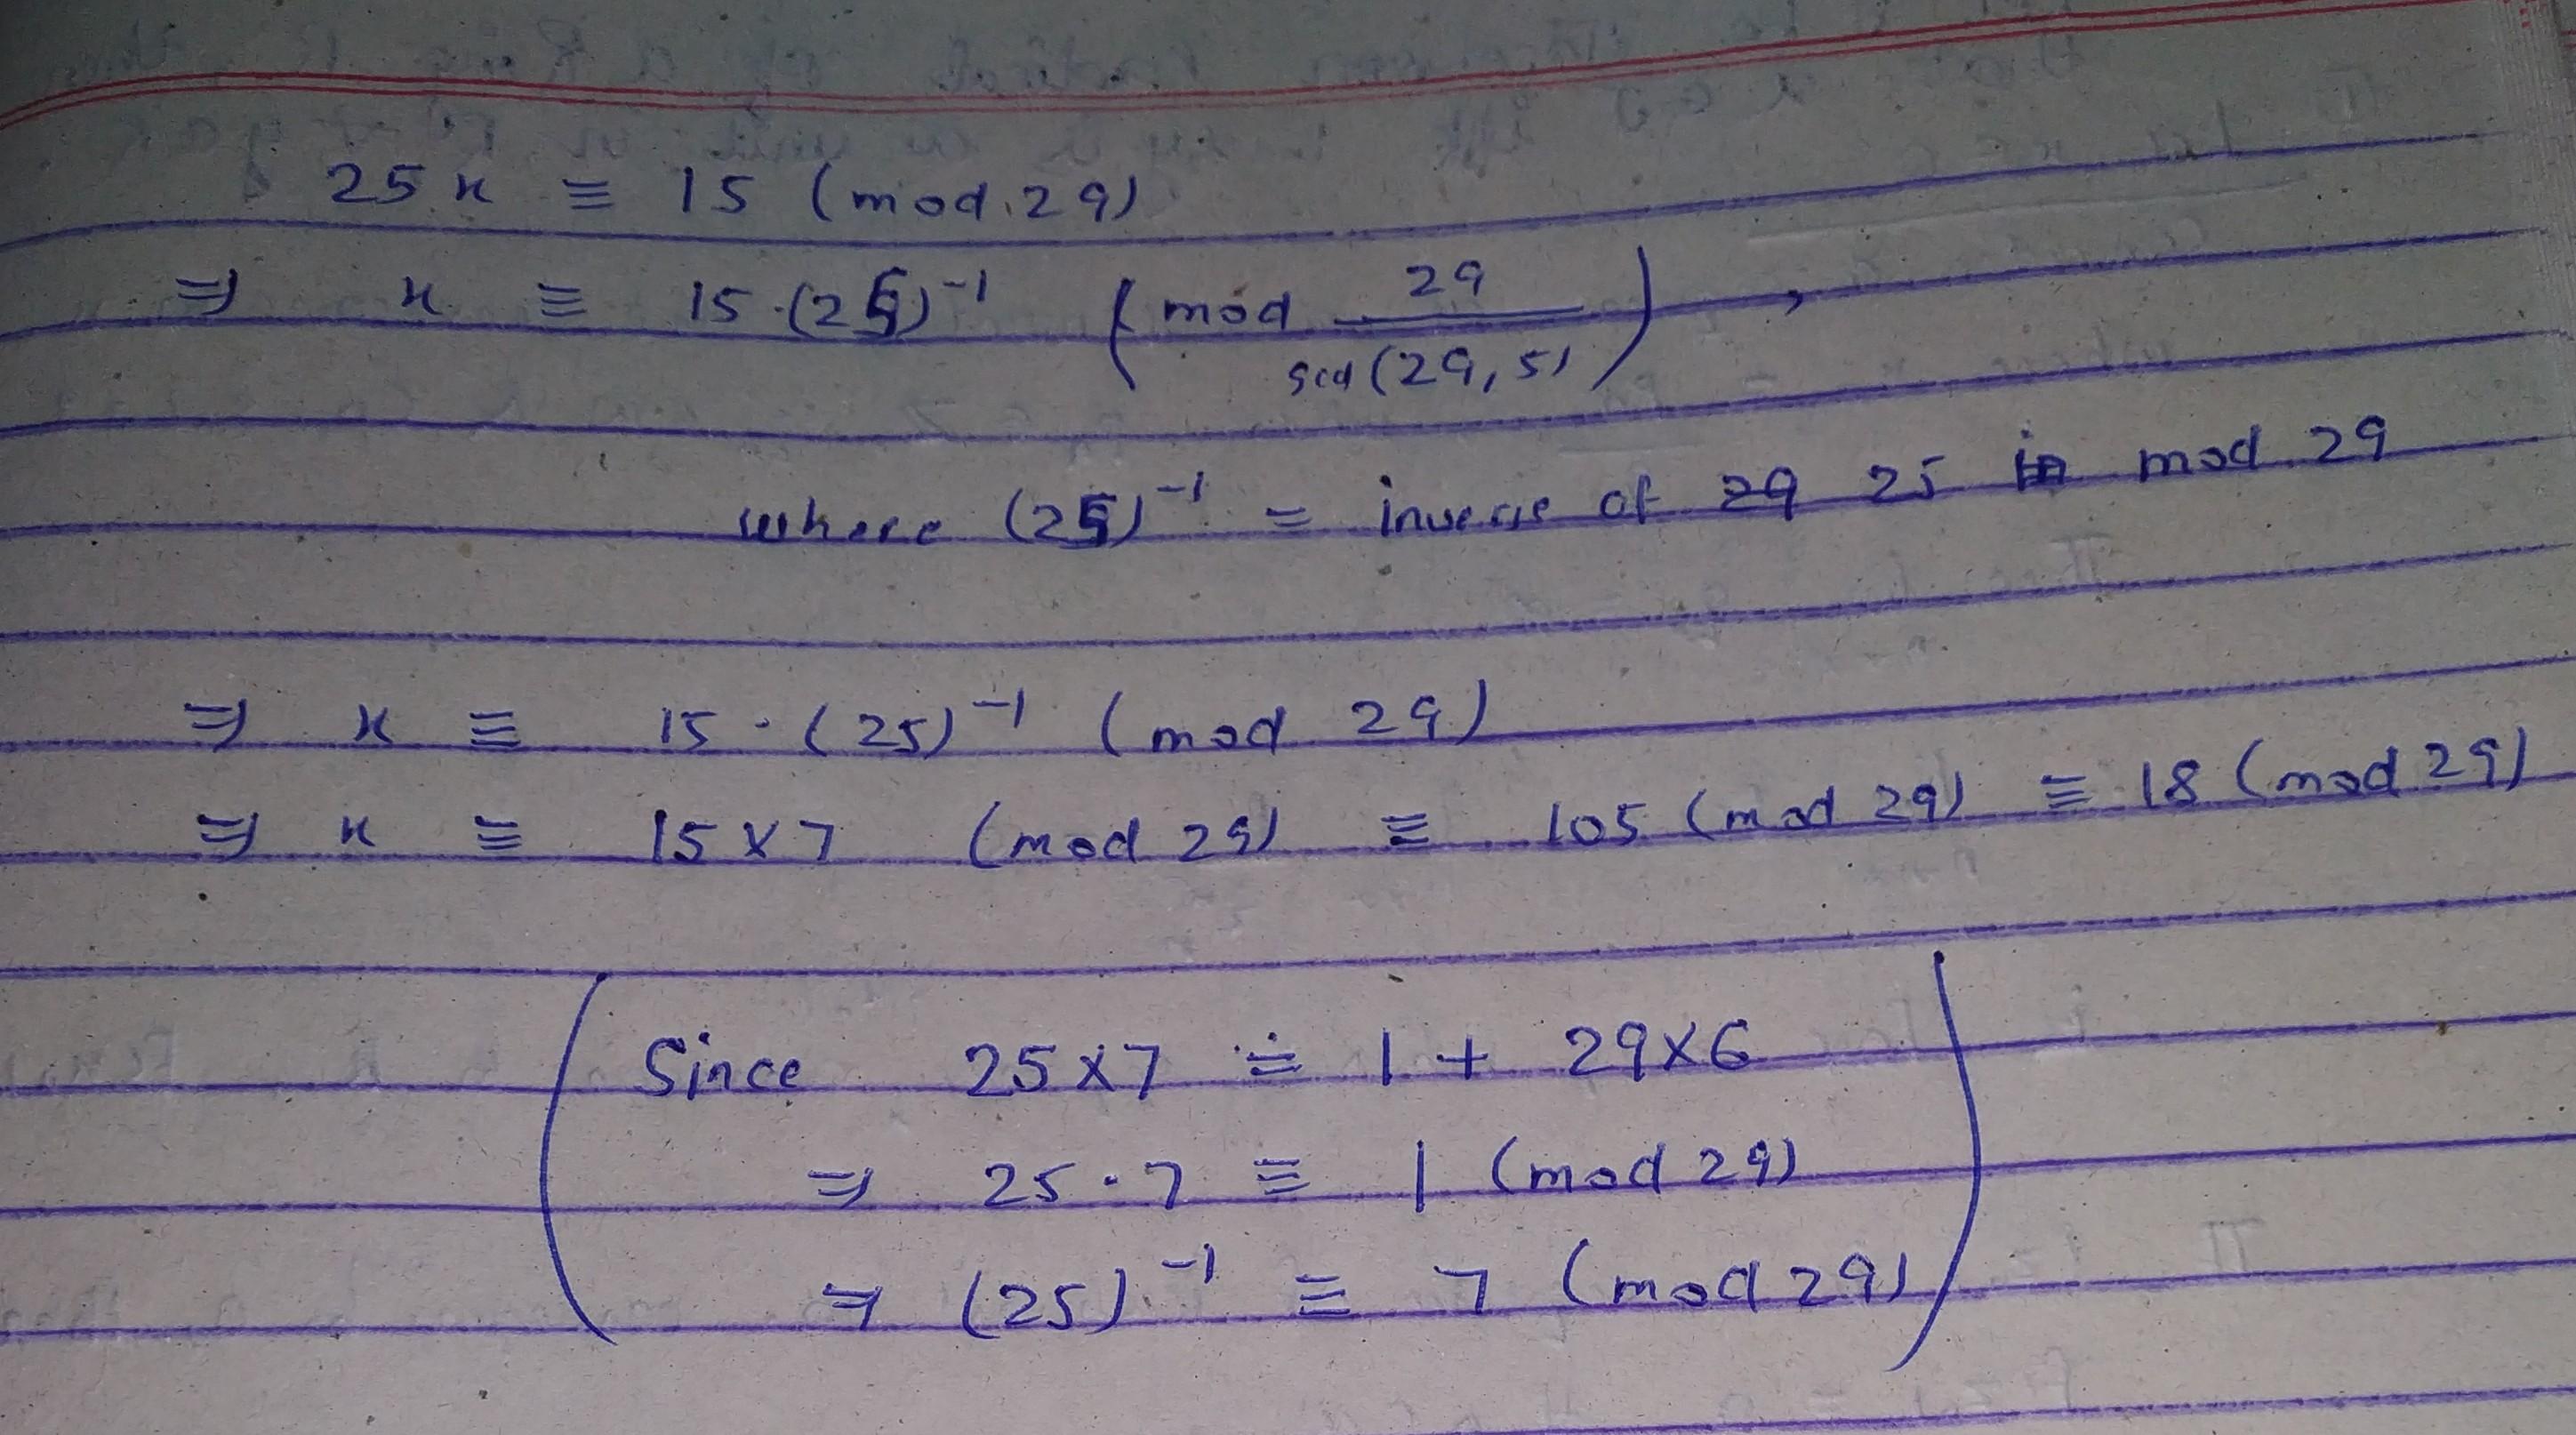 25x ≡ 15 (mod 29)
⇒ x ≡ 15·(25)⁻¹ (mod 29/gcd(29,5)),
where (25)⁻¹ = inverse of 29 25 in mod 29
⇒ x ≡ 15·(25)⁻¹ (mod 29)
⇒ x ≡ 15×7 (mod 29) ≡ 105 (mod 29) ≡ 18 (mod 29)
(Since 25×7 = 1 + 29×6
⇒ 25·7 ≡ 1 (mod 29)
⇒ (25)⁻¹ ≡ 7 (mod 29))